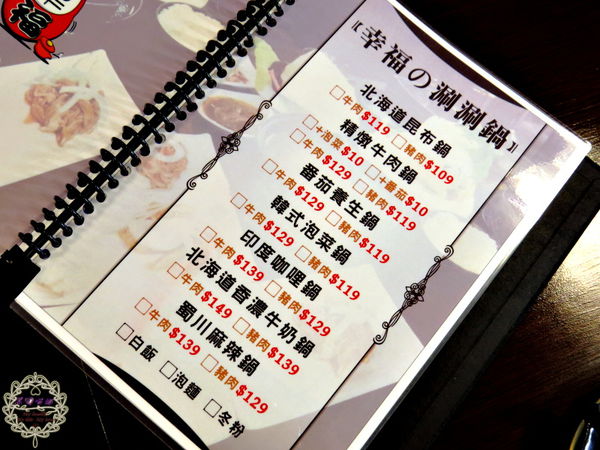 福
幸福の涮涮鍋
北海道昆布鍋
牛肉$119 豬肉$109
精燉牛肉鍋
+泡菜$10 +番茄$10
牛肉$129 豬肉$119
番茄養生鍋
牛肉$129 豬肉$119
韓式泡菜鍋
牛肉$129 豬肉$119
印度咖哩鍋
牛肉$139 豬肉$129
北海道香濃牛奶鍋
牛肉$149 豬肉$139
蜀川麻辣鍋
牛肉$139 豬肉$129
白飯 泡麵 冬粉